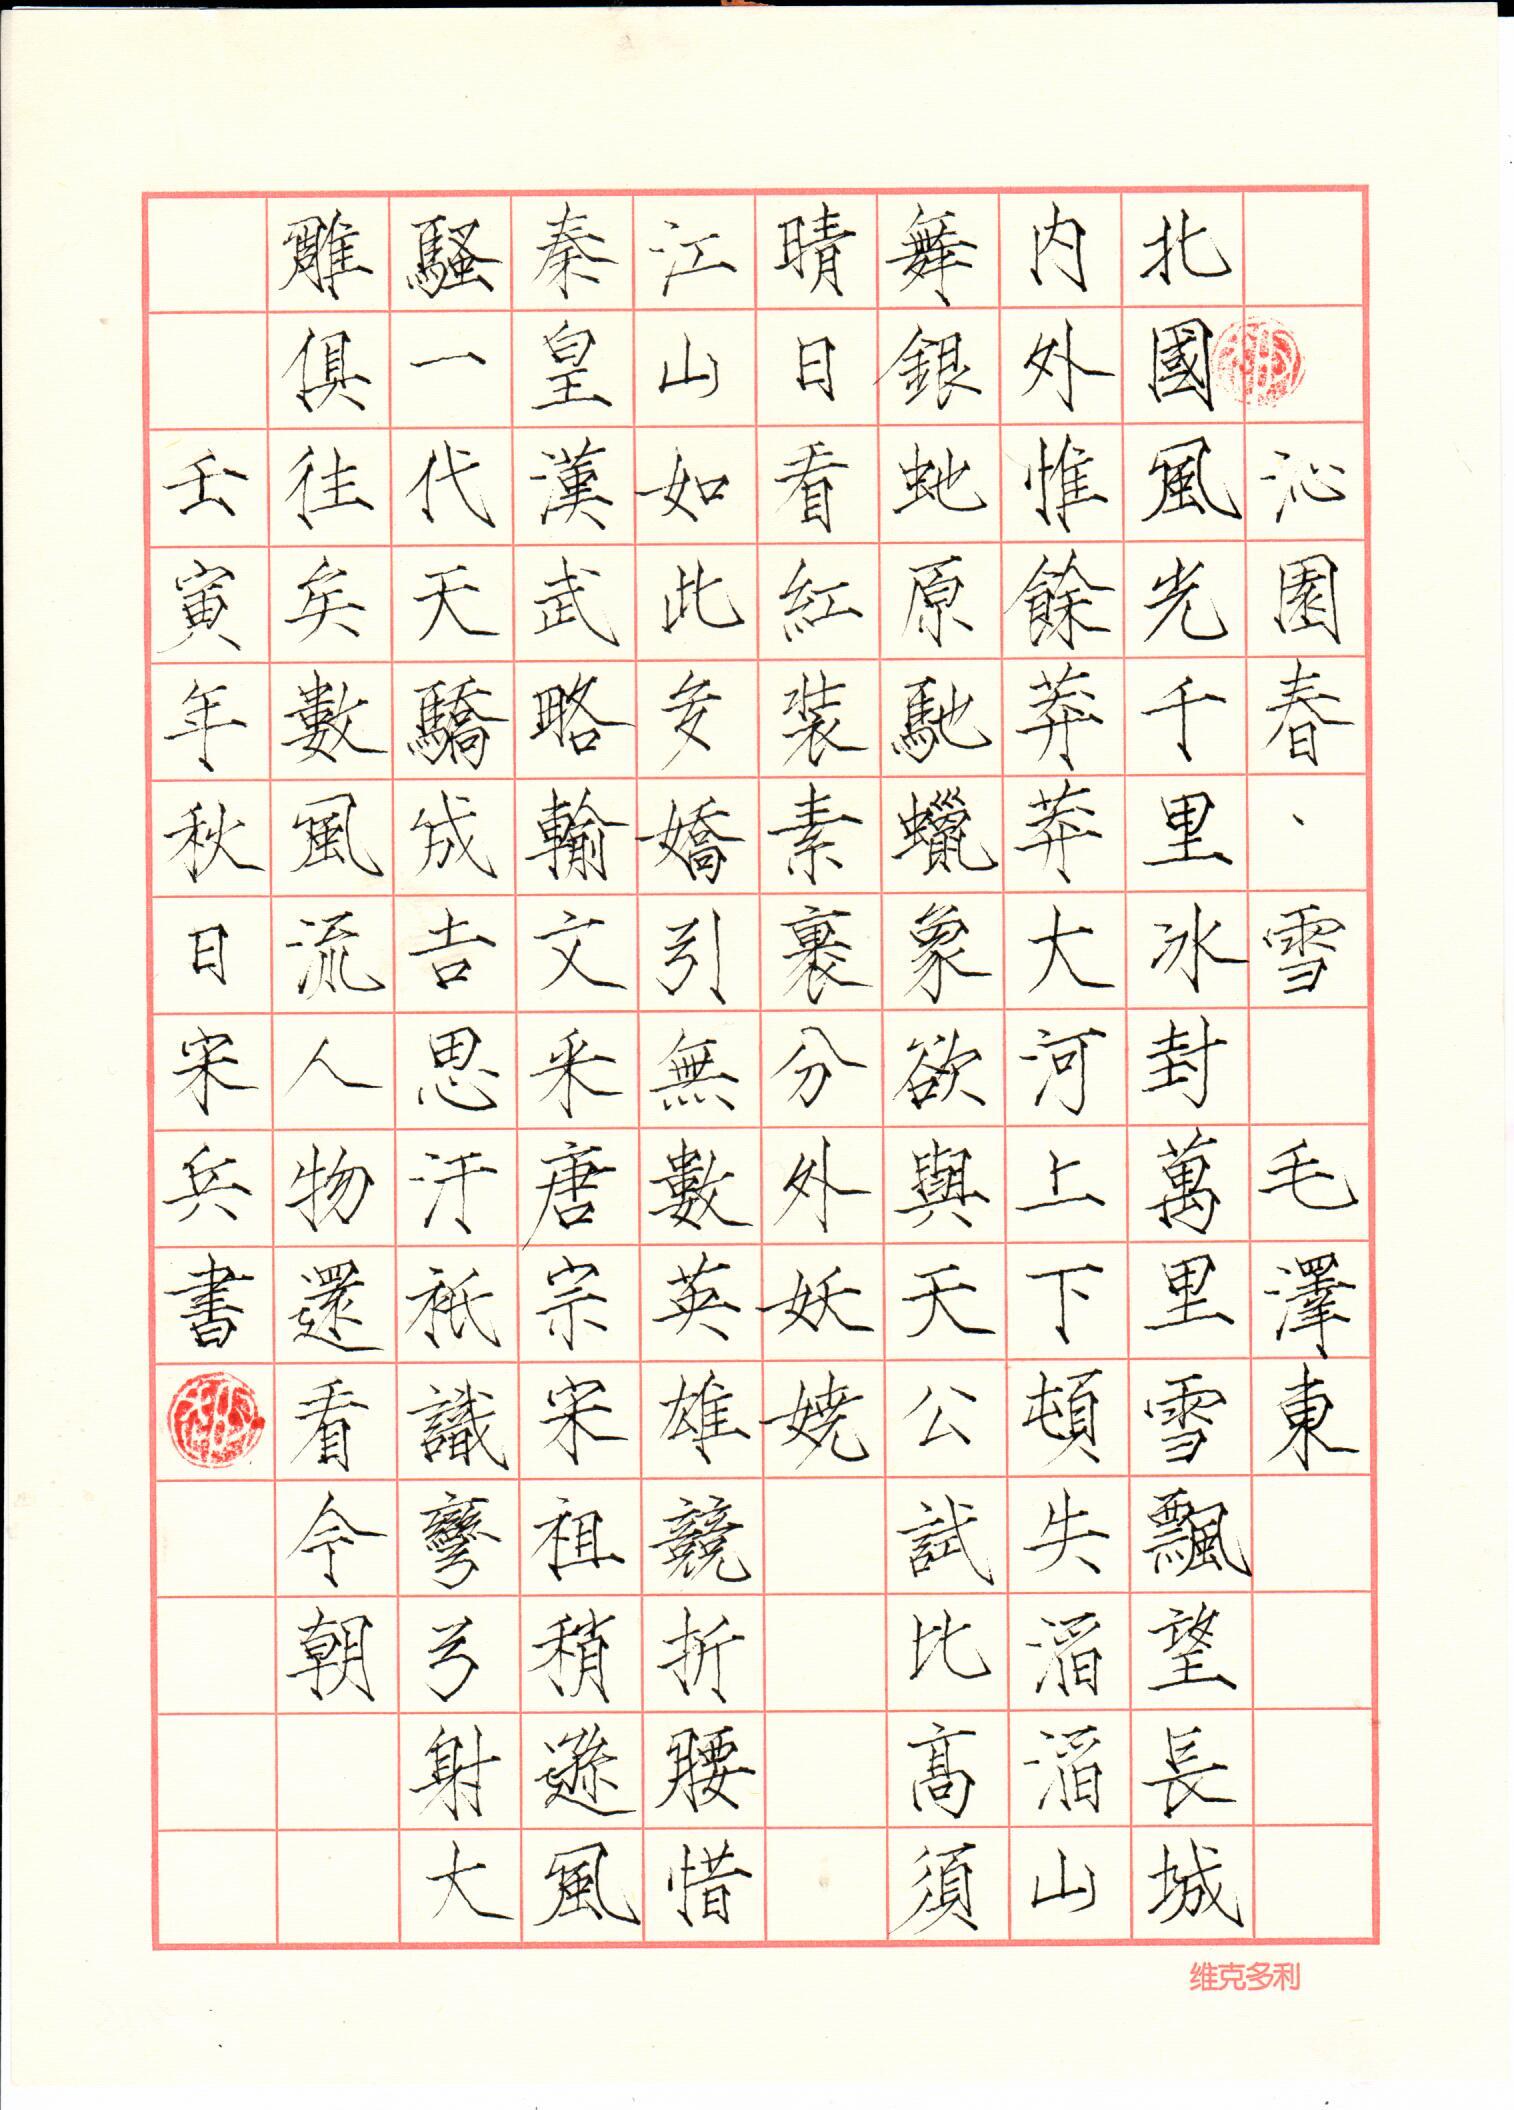 沁園春、雪 毛澤東
北國風光千里冰封萬里雪飄望長城
内外惟餘莽莽大河上下頓失滔滔山
舞銀虵原馳蠟象欲與天公試比高須
晴日看紅裝素裹分外妖娆
江山如此多嬌引無數英雄競折腰惜
秦皇漢武略輸文采唐宗宋祖稍遜風
騷一代天驕成吉思汗祇識彎弓射大
雕俱往矣數風流人物還看今朝
壬寅年秋日宋兵書
维克多利